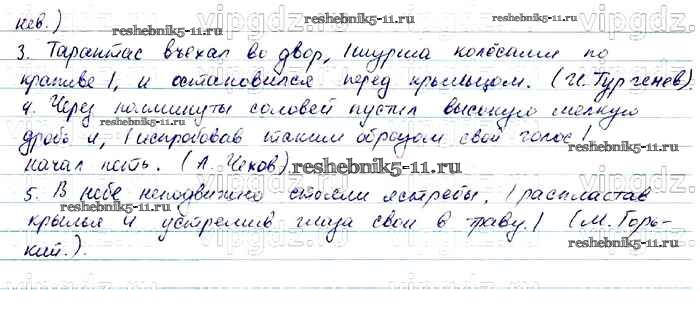 нев.)
3. Тарантас въехал во двор, |шурша колёсами по
крапиве|, и остановился перед крыльцом. (И. Тургенев).
4. Через полминуты соловей пустил высокую мелкую
дробь и, |испробовав таким образом свой голос|
начал петь. (А. Чехов)
5. В небе неподвижно стояли ястребы, |распластав
крылья и устремив глаза свои в траву.| (М. Горь-
кий.).
reshebnik5-11.ru
reshebnik5-11.ru
reshebnik5-11.ru
reshebnik5-11.ru
reshebnik5-11.ru
reshebnik5-11.ru
vipgdz